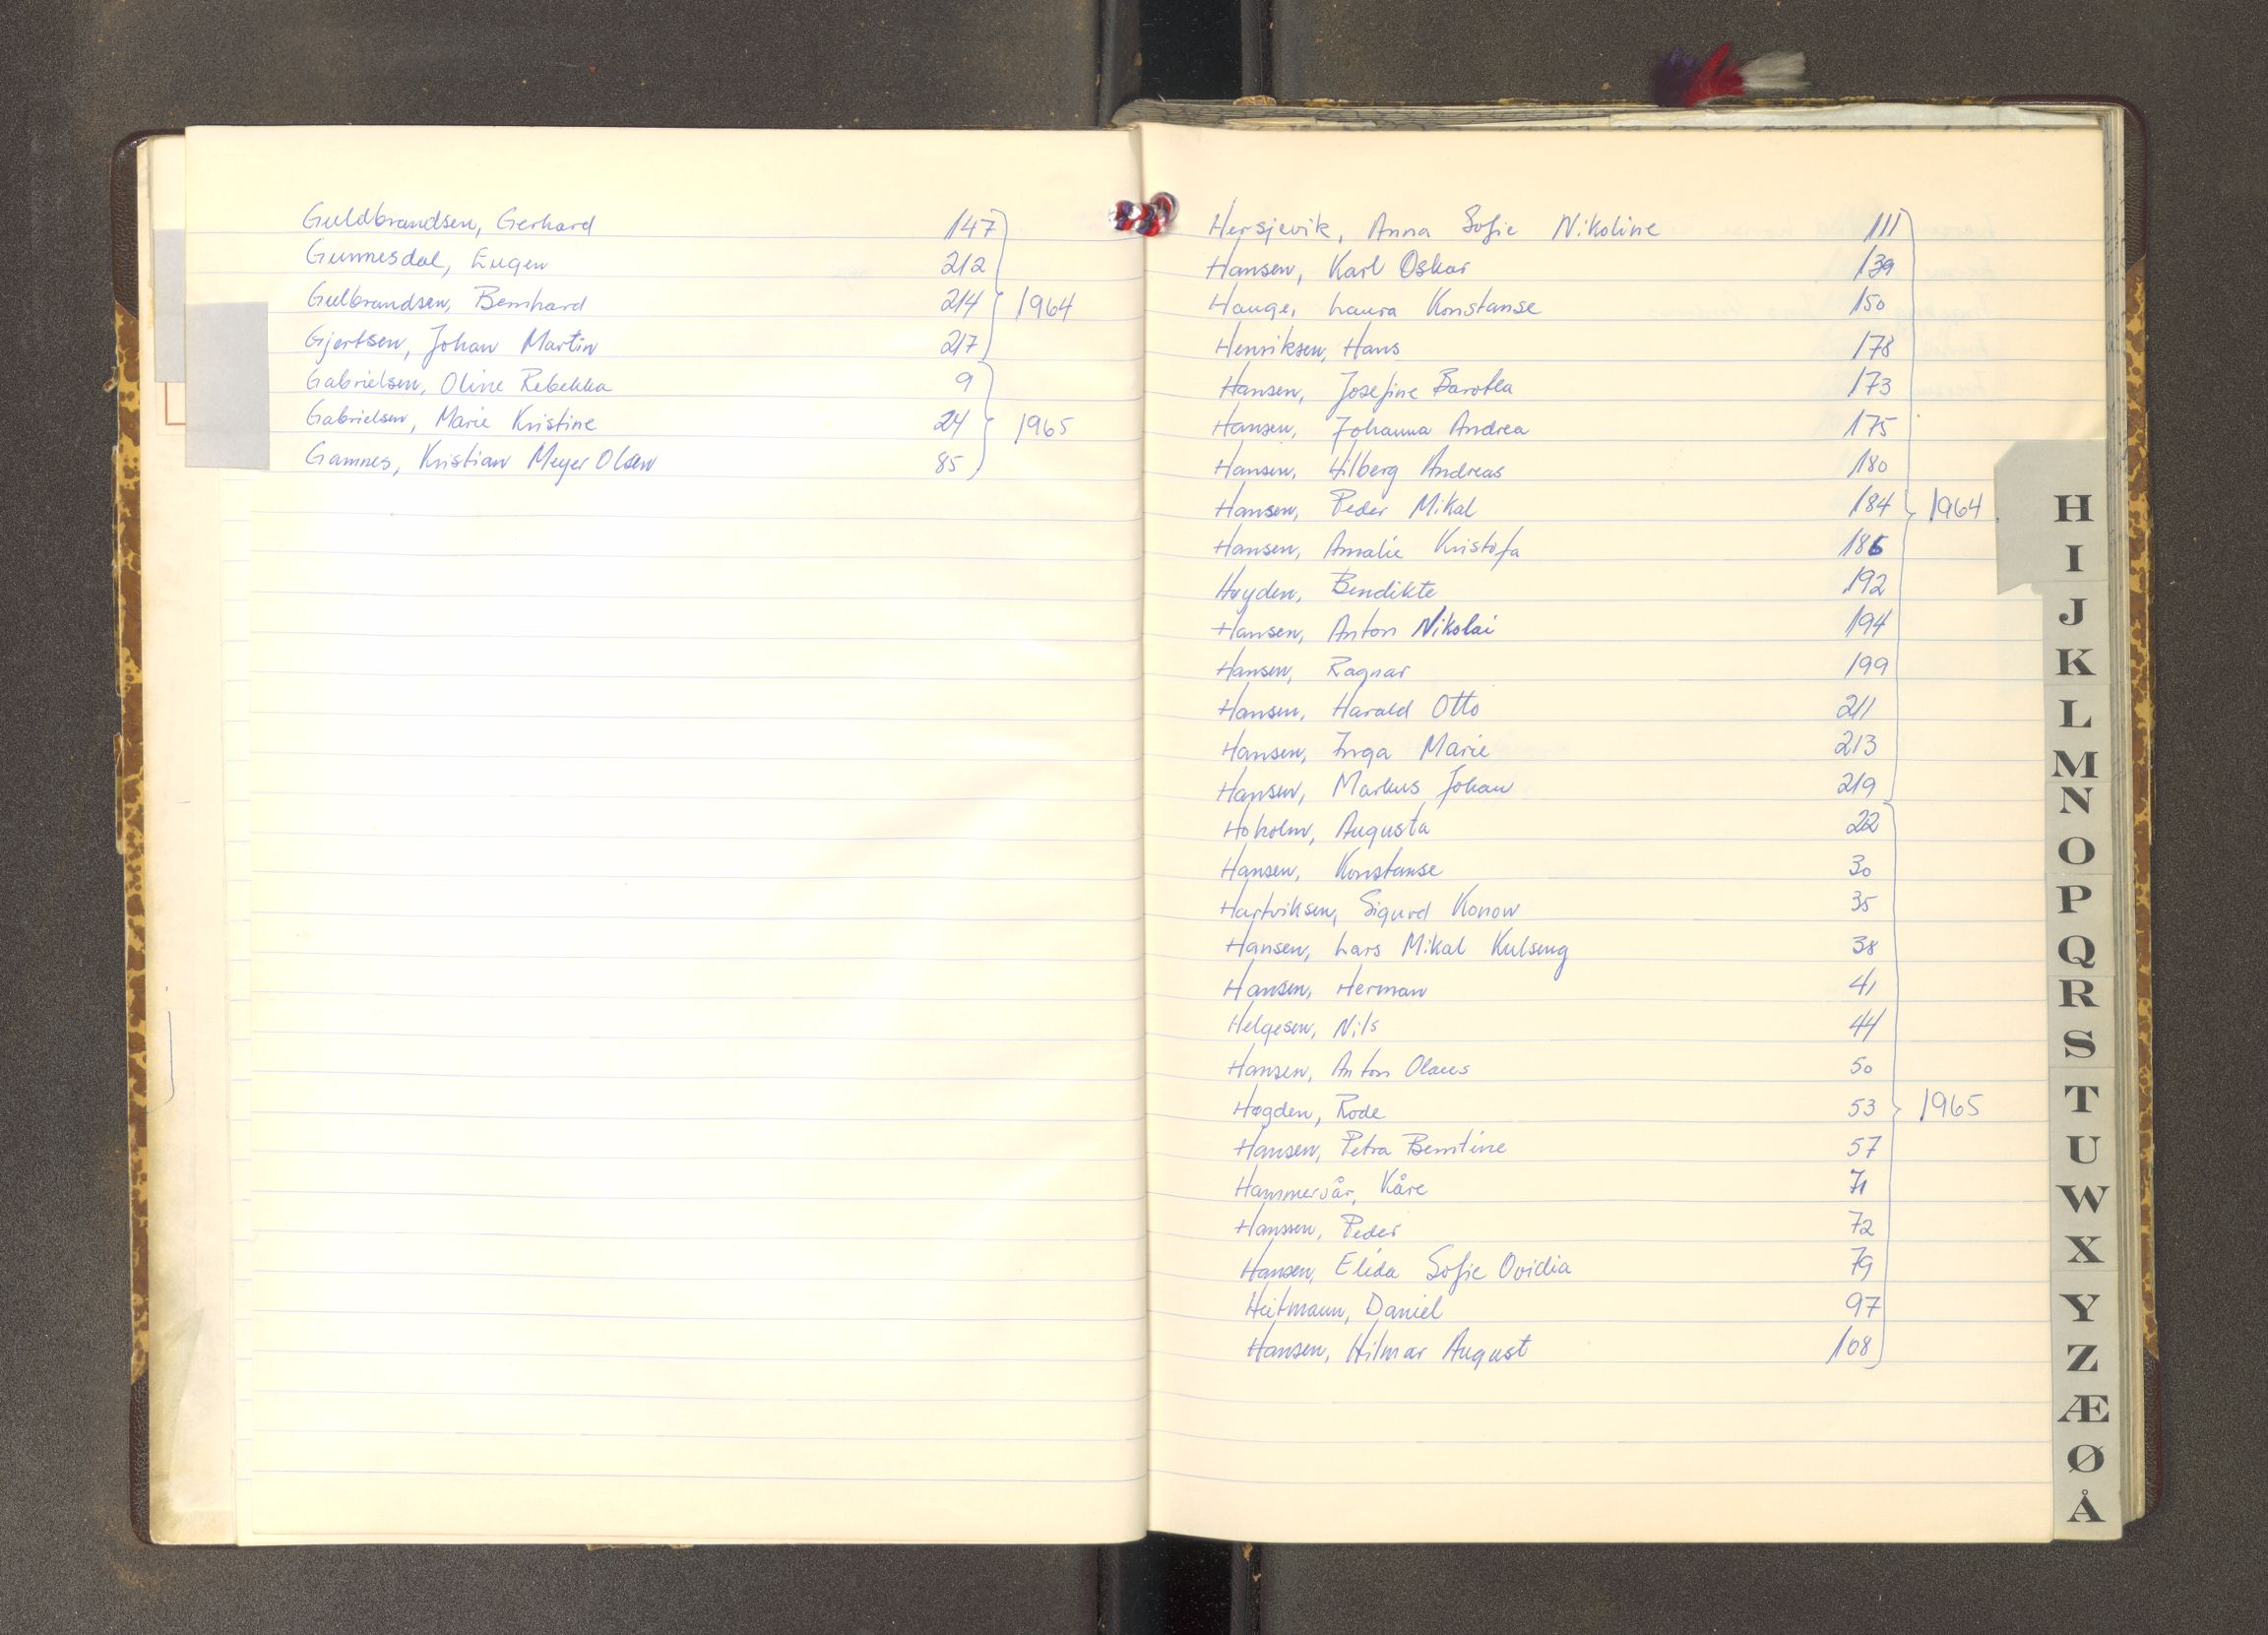 Guldbrandsen, Gerhard 147
Gunnesdal, Eugen 212
Gulbrandsen, Bernhard 214
1964
Gjertsen, Johan Martin 217
Gabrielsen, Oline Rebekka 9
Gabrielsen, Marie Kristine 24
1965
Gamnes, Kristian Meyer Olsen 85
Hersjevik, Anna Sofie Nikoline 111
Hansen, Karl Oskar 139
Hauge, Laura Konstanse 150
Henriksen, Hans 178
Hansen, Josefine Barotea 173
Hansen, Johanna Andrea 175
Hansen, Hilberg Andreas 180
Hansen, Peder Mikal 184
1964
Hansen, Amalie Kristofa 186
Høyden, Bendikte 192
Hansen, Anton Nikolai 194
Hansen, Ragnar 199
Hansen, Harald Otto 211
Hansen, Inga Marie 213
Hansen, Markus Johan 219
Hoholm, Augusta 22
Hansen, Konstanse 30
Hartviksen, Sigurd Konow 35
Hansen, Lars Mikal Kulseng 38
Hansen, Herman 41
Helgesen, Nils 44
Hansen, Anton Olaus 50
Høgden, Rode 53
1965
Hansen, Petra Berntine 57
Kåre 71
Hanssen, Peder 72
Hansen, Elida Sofie Ovidia 79
Heitmann, Daniel 97
Hansen, Hilmar August 108
H
I
J
K
L
M
N
O
P
Q
R
S
T
U
W
X
Y
Z
Æ
Ø
Å